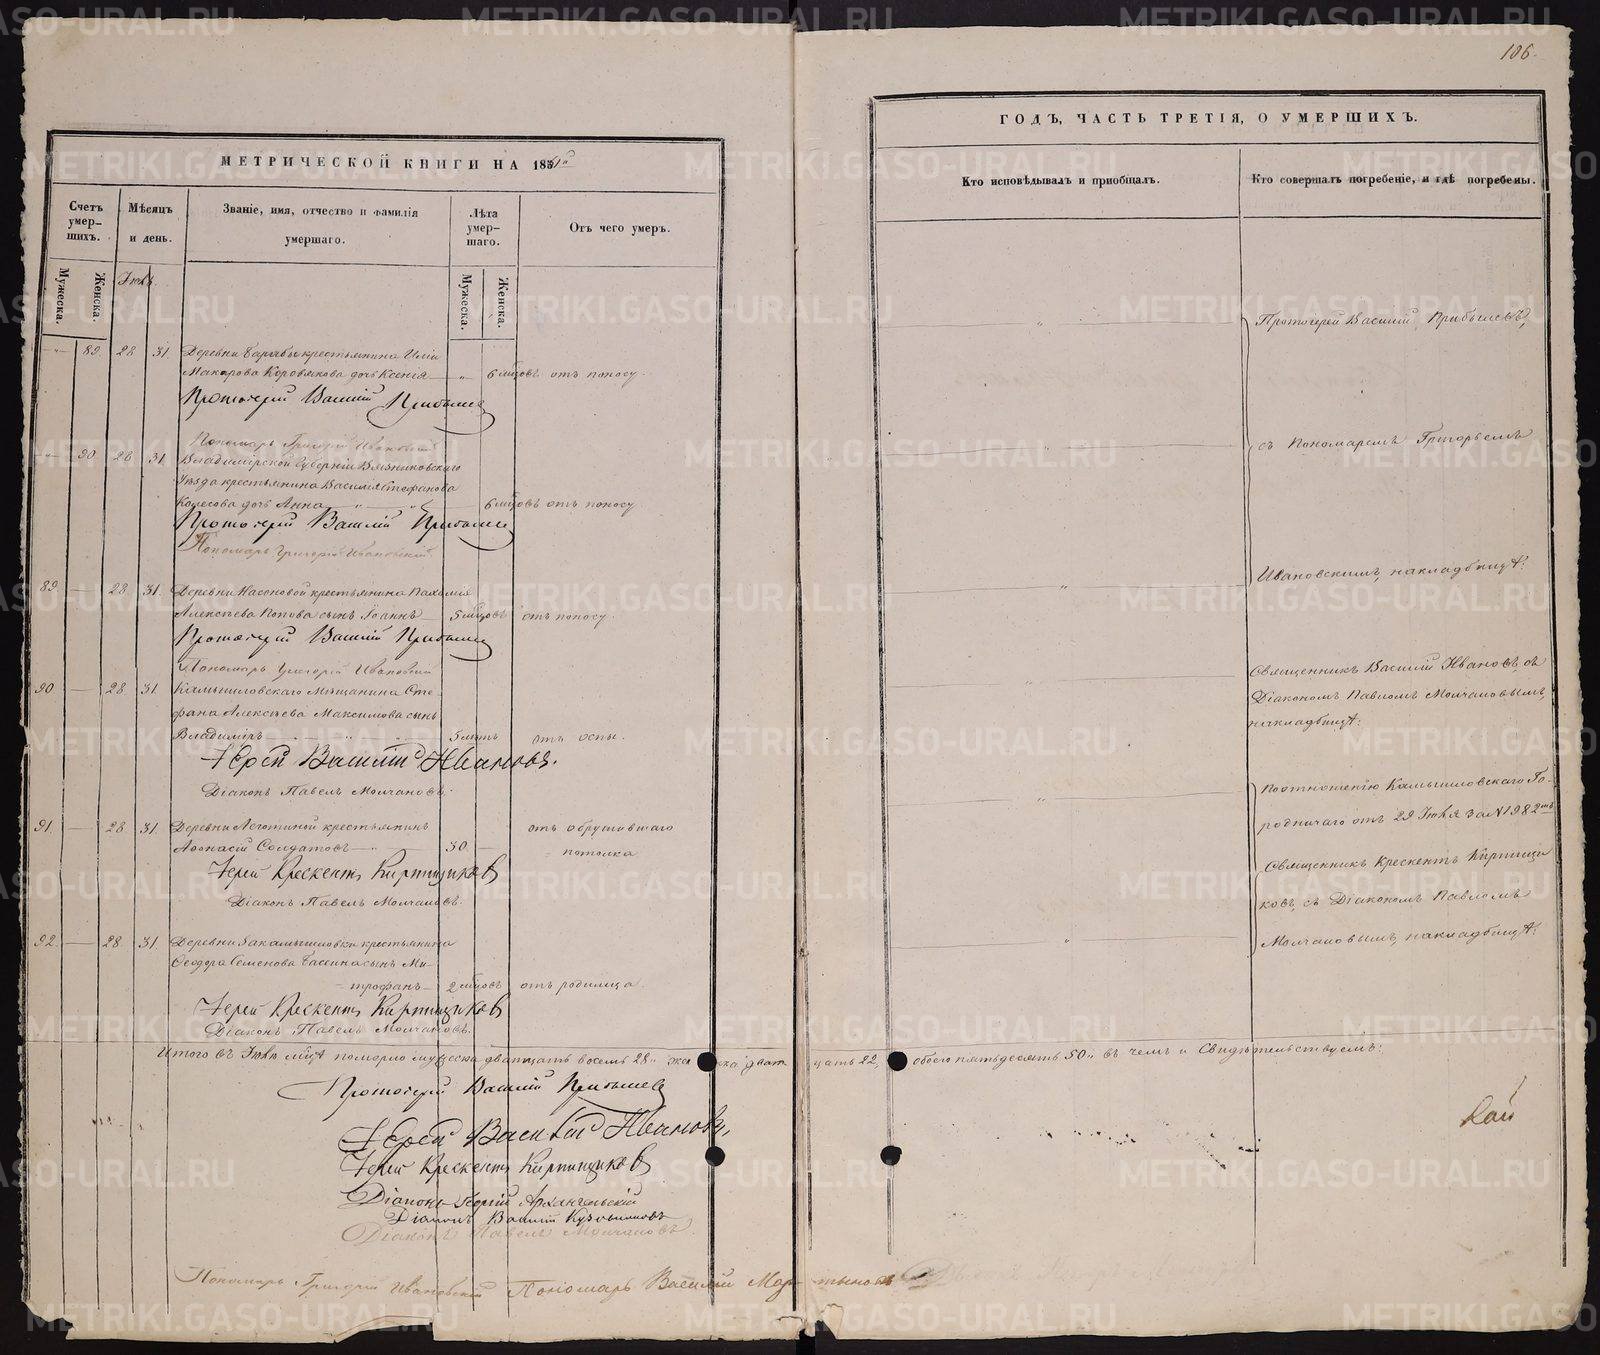 106.
МЕТРИЧЕСКОЙ КНИГИ НА 1851й
ГОДЪ, ЧАСТЬ ТРЕТІЯ, О УМЕРШИХЪ.
Счетъ умер-
шихъ.
Мѣсяцъ
и день.
Званіе, имя, отчество и фамилія
умершаго.
Лѣта
умер-
шаго.
Отъ чего умеръ.
Кто исповѣдывалъ и пріобщалъ.
Кто совершалъ погребеніе, и гдѣ погребены.
Мужеска.
Женска.
Іюль.
Мужеска.
Женска.
89 28 31. Деревни крестьянина Иліи
Макарова Коровякова дочь Ксенія 6 мцовъ отъ поносу.
Протоіерей Василій Прибылевъ
Пономарь Григорій Ивановскій
Протоіерей Василій Прибылевъ,
90 28 31. Владимірской губерніи Вязниковскаго
уѣзда крестьянина Василія Стефанова
Колесова дочь Анна 6 мцовъ отъ поносу
Протоіерей Василій Прибылевъ
Пономарь Григорій Ивановскій
съ Пономаремъ Григорьемъ
89. 28 31. Деревни Насоновой крестьянина Пахомія
Алексѣева Попова сынъ Іоаннъ 5 мцовъ отъ поносу.
Протоіерей Василій Прибылевъ
Пономарь Григорій Ивановскій
Ивановскимъ, на кладбищѣ.
90 28 31. Камышловскаго Мѣщанина Сте-
фана Алексѣева Максимова сынъ
Владиміръ 5 лѣтъ отъ оспы.
Іерей Василій Ивановъ.
Діаконъ Павелъ Молчановъ.
Священникъ Василій Ивановъ, съ
Діакономъ Павломъ Молчановымъ,
на кладбищѣ.
91. 28 31. Деревни крестьянинъ
Аѳонасій Солдатовъ 30. отъ обрушившаго
потолка
Іерей Крескентъ Кирпищиковъ
Діаконъ Павелъ Молчановъ.
По отношенію Камышловскаго Го-
родничаго отъ 29 Іюля за № 1982мъ
Священникъ Крескентъ Кирпищи
ковъ, съ Діакономъ Павломъ
92. 28 31. Деревни Закамышловки крестьянина
Ѳеодора Семенова сынъ Ми-
трофанъ 2 мцовъ отъ родимца.
Іерей Крескентъ Кирпищиковъ
Діаконъ Павелъ Молчановъ.
Молчановымъ, на кладбищѣ.
Итого въ Іюлѣ мцѣ померло мужеска дватцать восемь 28. женска дватцать 22, обоего пятьдесятъ 50. въ чемъ и Свидѣтельствуемъ:
Протоіерей Василій Прибылевъ
Іерей Василій Ивановъ,
Іерей Крескентъ Кирпищиковъ
Діаконъ Георгій Архангельскій
Діаконъ Василій
Діаконъ Павелъ Молчановъ
Пономарь Григорій Ивановскій Пономарь Василій Мартыновъ
METRIKI.GASO-URAL.RU